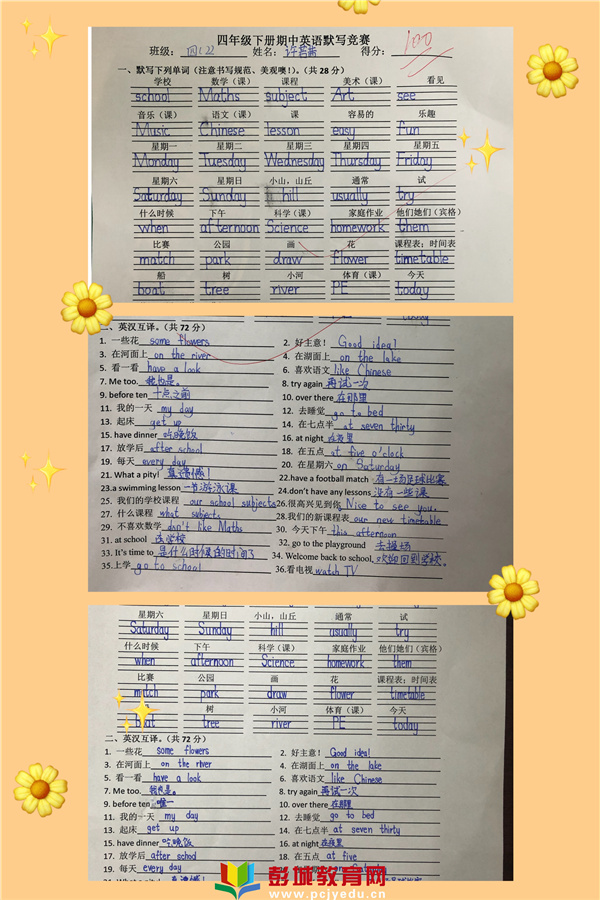 四年级下册期中英语默写竞赛
班级: 四(22 姓名: 得分: 100
一、默写下列单词(注意书写规范、美观噢!)。(共 28 分)
学校 数学(课) 课程 美术(课) 看见
school Maths subject Art see
音乐(课) 语文(课) 课 容易的 乐趣
Music Chinese lesson easy fun
星期一 星期二 星期三 星期四 星期五
Monday Tuesday Wednesday Thursday Friday
星期六 星期日 小山,山丘 通常 试
Saturday Sunday hill usually try
什么时候 下午 科学(课) 家庭作业 他们她们(宾格)
when afternoon Science homework them
比赛 公园 画 花 课程表;时间表
match park draw flower timetable
船 树 小河 体育(课) 今天
boat tree river PE today
二、英汉互译。(共 72 分)
1. 一些花 some flowers 2. 好主意! Good idea!
3. 在河面上 on the river 4. 在湖面上 on the lake
5. 看一看 have a look 6. 喜欢语文 like Chinese
7. Me too. 我也是。 8. try again 再试一次
9. before ten 十点之前 10. over there 在那里
11. 我的一天 my day 12. 去睡觉 go to bed
13. 起床 get up 14. 在七点半 at seven thirty
15. have dinner 吃晚饭 16. at night 在夜里
17. 放学后 after school 18. 在五点 at five o'clock
19. 每天 every day 20. 在星期六 on Saturday
21. What a pity! 真遗憾! 22.have a football match 有一场足球比赛
23.a swimming lesson 一节游泳课 24.don't have any lessons 没有一些课
25. 我们的学校课程 our school subjects 26.很高兴见到你 Nice to see you.
27. 什么课程 what subjects 28.我们的新课程表 our new timetable
29. 不喜欢数学 don't like Maths 30. 今天下午 this afternoon
31. at school 在学校 32. go to the playground 去操场
33. It's time to 是什么时候的时间了 34. Welcome back to school. 欢迎回到学校。
35.上学 go to school 36.看电视 watch TV
星期六 星期日 小山,山丘 通常 试
Saturday Sunday hill usually try
什么时候 下午 科学(课) 家庭作业 他们她们(宾格)
when afternoon Science homework them
比赛 公园 画 花 课程表;时间表
match park draw flower timetable
树 小河 体育(课) 今天
boat tree river PE today
二、英汉互译。(共 72 分)
1. 一些花 some flowers 2. 好主意! Good idea!
3. 在河面上 on the river 4. 在湖面上 on the lake
5. 看一看 have a look 6. 喜欢语文 like Chinese
7. Me too. 我也是。 8. try again 再试一次
9. before ten 10. over there 在那里
11. 我的一天 my day 12. 去睡觉 go to bed
13. 起床 get up 14. 在七点半 at seven thirty
15. have dinner 吃晚饭 16. at night 在夜里
17. 放学后 after school 18. 在五点 at five
19. 每天 every day 20.
彭城教育网
www.pcjyedu.cn